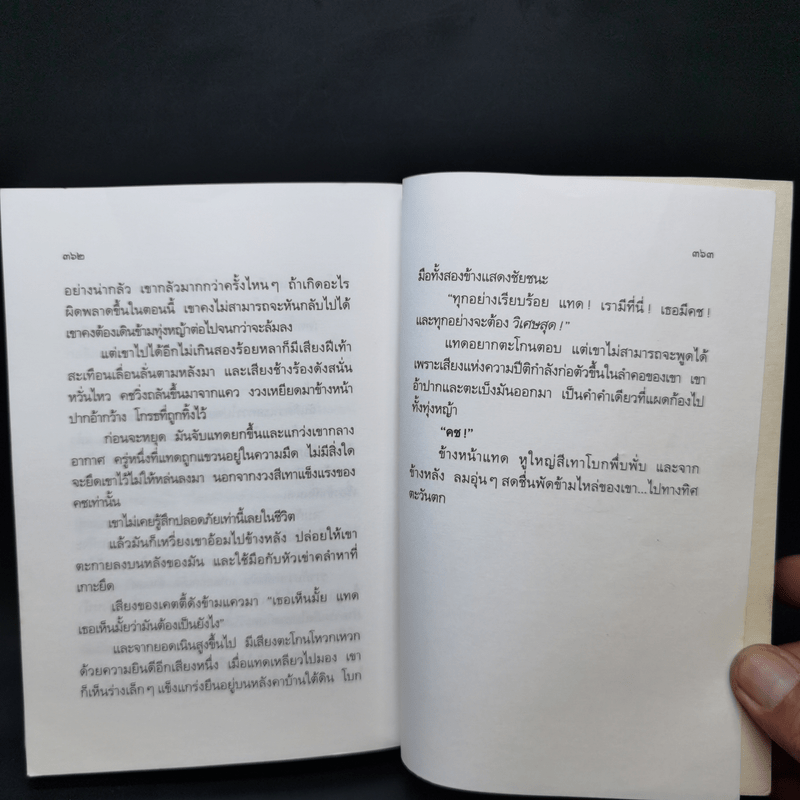 ๓๖๒
อย่างน่ากลัว เขากลัวมากกว่าครั้งไหนๆ ถ้าเกิดอะไร
ผิดพลาดขึ้นในตอนนี้ เขาคงไม่สามารถจะหันกลับไปได้
เขาคงต้องเดินข้ามทุ่งหญ้าต่อไปจนกว่าจะล้มลง
แต่เขาไปได้อีกไม่เกินสองร้อยหลาก็มีเสียงฝีเท้า
สะเทือนเลื่อนลั่นตามหลังมา และเสียงช้างร้องดังสนั่น
หวั่นไหว คชวิ่งถลันขึ้นมาจากแคว งวงเหยียดมาข้างหน้า
ปากอ้ากว้าง โกรธที่ถูกทิ้งไว้
ก่อนจะหยุด มันจับแทดยกขึ้นและแกว่งเขากลาง
อากาศ ครู่หนึ่งที่แทดถูกแขวนอยู่ในความมืด ไม่มีสิ่งใด
จะยึดเขาไว้ไม่ให้หล่นลงมา นอกจากงวงสีเทาแข็งแรงของ
คชเท่านั้น
เขาไม่เคยรู้สึกปลอดภัยเท่านี้เลยในชีวิต
แล้วมันก็เหวี่ยงเขาอ้อมไปข้างหลัง ปล่อยให้เขา
ตะกายลงบนหลังของมัน และใช้มือกับหัวเข่าคลำหาที่
เกาะยึด
เสียงของเคตตี้ดังข้ามแควมา "เธอเห็นมั้ย แทด
เธอเห็นมั้ยว่ามันต้องเป็นยังไง"
และจากยอดเนินสูงขึ้นไป มีเสียงตะโกนโหวกเหวก
ด้วยความยินดีอีกเสียงหนึ่ง เมื่อแทดเหลียวไปมอง เขา
ก็เห็นร่างเล็กๆ แข็งแกร่งยืนอยู่บนหลังคาบ้านใต้ดิน โบก
๓๖๓
มือทั้งสองข้างแสดงชัยชนะ
"ทุกอย่างเรียบร้อย แทด! เรามีที่นี่! เธอมีคช!
และทุกอย่างจะต้อง วิเศษสุด!"
แทดอยากตะโกนตอบ แต่เขาไม่สามารถจะพูดได้
เพราะเสียงแห่งความปีติกำลังก่อตัวขึ้นในลำคอของเขา เขา
อ้าปากและตะเบ็งมันออกมา เป็นคำคำเดียวที่แผดก้องไป
ทั้งทุ่งหญ้า
"คช!"
ข้างหน้าแทด หูใหญ่สีเทาโบกพึ่บพั่บ และจาก
ข้างหลัง ลมอุ่นๆ สดชื่นพัดข้ามไหล่ของเขา...ไปทางทิศ
ตะวันตก